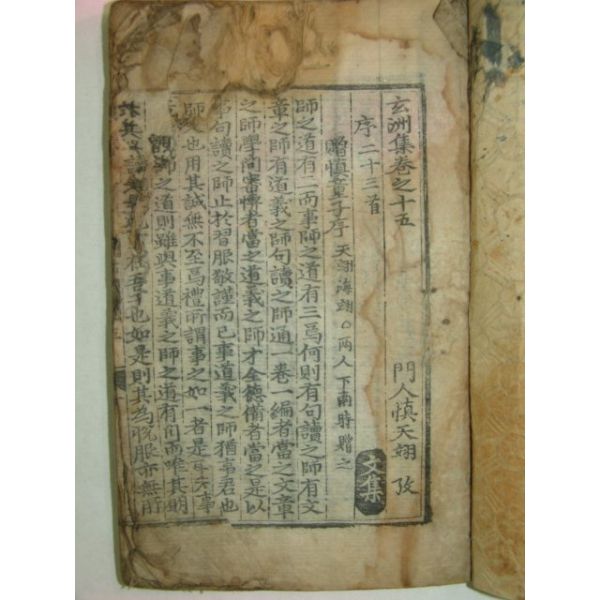 玄洲集卷之十五
門人愼天翊 攷
序二十三首
文集
贈愼童子序 天翊海翊○两人下南時贈之
師之道有二而事師之道有三爲何則有句讀之師有文
章之師有道義之師句讀之師通一卷一編者當之文章
之師學尚審博者當之道義之師才全德備者當之是以
事句讀之師止於習服敬謹而已事道義之師猶事君也
師 也用其誠無不至爲禮所謂事之如一者是耳夫事
師之道則雖與事道義之師之道有 而唯其明
其 也如是則其為悅服亦無所